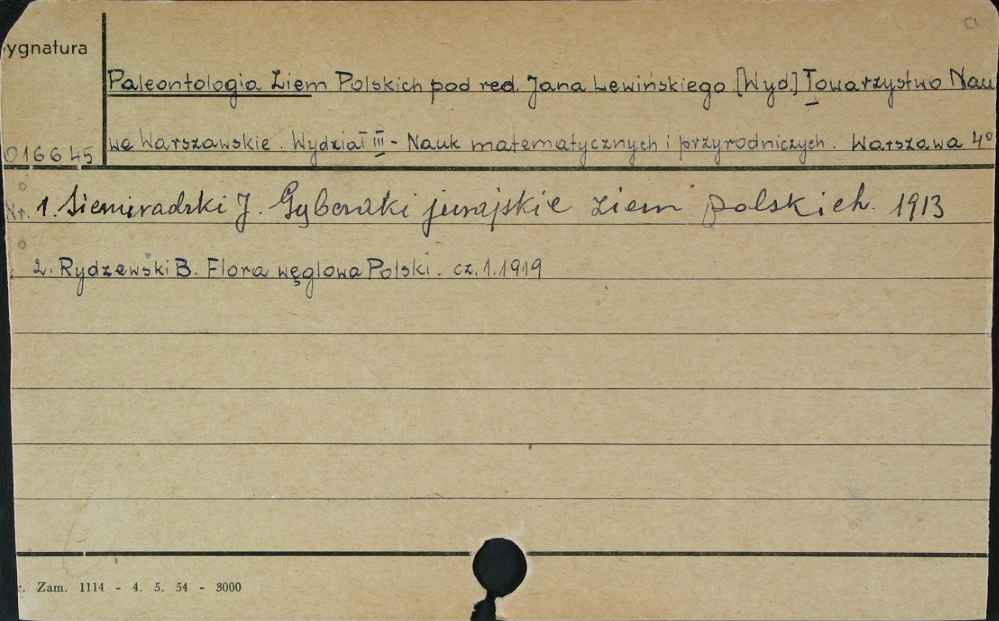 ygnatura
Paleontologia Ziem Polskich pod red. Jana Lewińskiego [Wyd.] Towarzystwo Nau
016645 we Warszawskie. Wydział III - Nauk matematycznych i przyrodniczych. Warszawa 4°
Nr. 1. Siemiradzki J. Gąberzki jurajskie ziem polskich. 1913
2. Rydzewski B. Flora węglowa Polski. cz. 1. 1919
r. Zam. 1114 - 4. 5. 54 - 3000